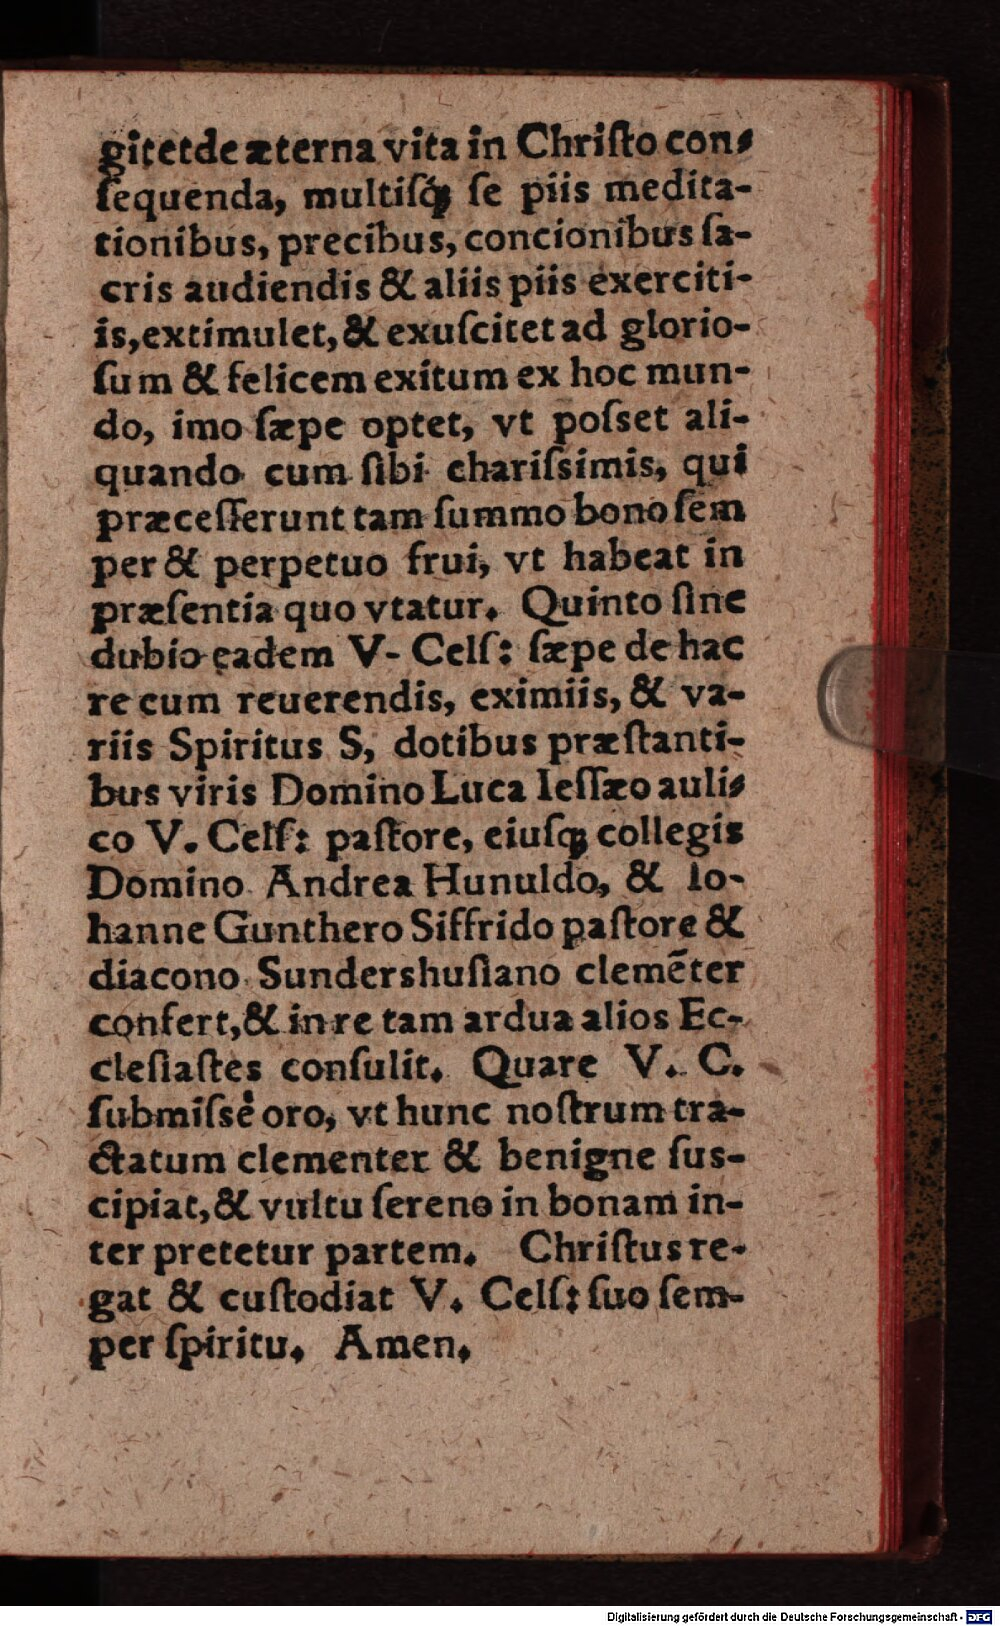 gitetde æterna vita in Chriſto con-
ſequenda, multiſq́; ſe piis medita-
tionibus, precibus, concionibus ſa-
cris audiendis & aliis piis exerciti-
is, extimulet, & exuſcitet ad glorio-
ſum & felicem exitum ex hoc mun-
do, imo ſæpe optet, vt poſſet ali-
quando cum ſibi chariſsimis, qui
præceſſerunt tam ſummo bono ſem
per & perpetuo frui, vt habeat in
præſentia quo vtatur. Quinto ſine
dubio eadem V- Celſ: ſæpe de hac
re cum reuerendis, eximiis, & va-
riis Spiritus S, dotibus præſtanti-
bus viris Domino Luca Ieſſæo auli-
co V. Celſ: paſtore, eiuſq; collegis
Domino Andrea Hunuldo, & Io-
hanne Gunthero Siffrido paſtore &
diacono Sundershuſiano clemēter
confert, & in re tam ardua alios Ec-
cleſiaſtes conſulit. Quare V. C.
ſubmiſsè oro, vt hunc noſtrum tra-
ctatum clementer & benigne ſus-
cipiat, & vultu ſereno in bonam in-
ter pretetur partem. Chriſtus re-
gat & cuſtodiat V. Celſ: ſuo ſem-
per ſpiritu. Amen.
Digitalisierung gefördert durch die Deutsche Forschungsgemeinschaft - DFG